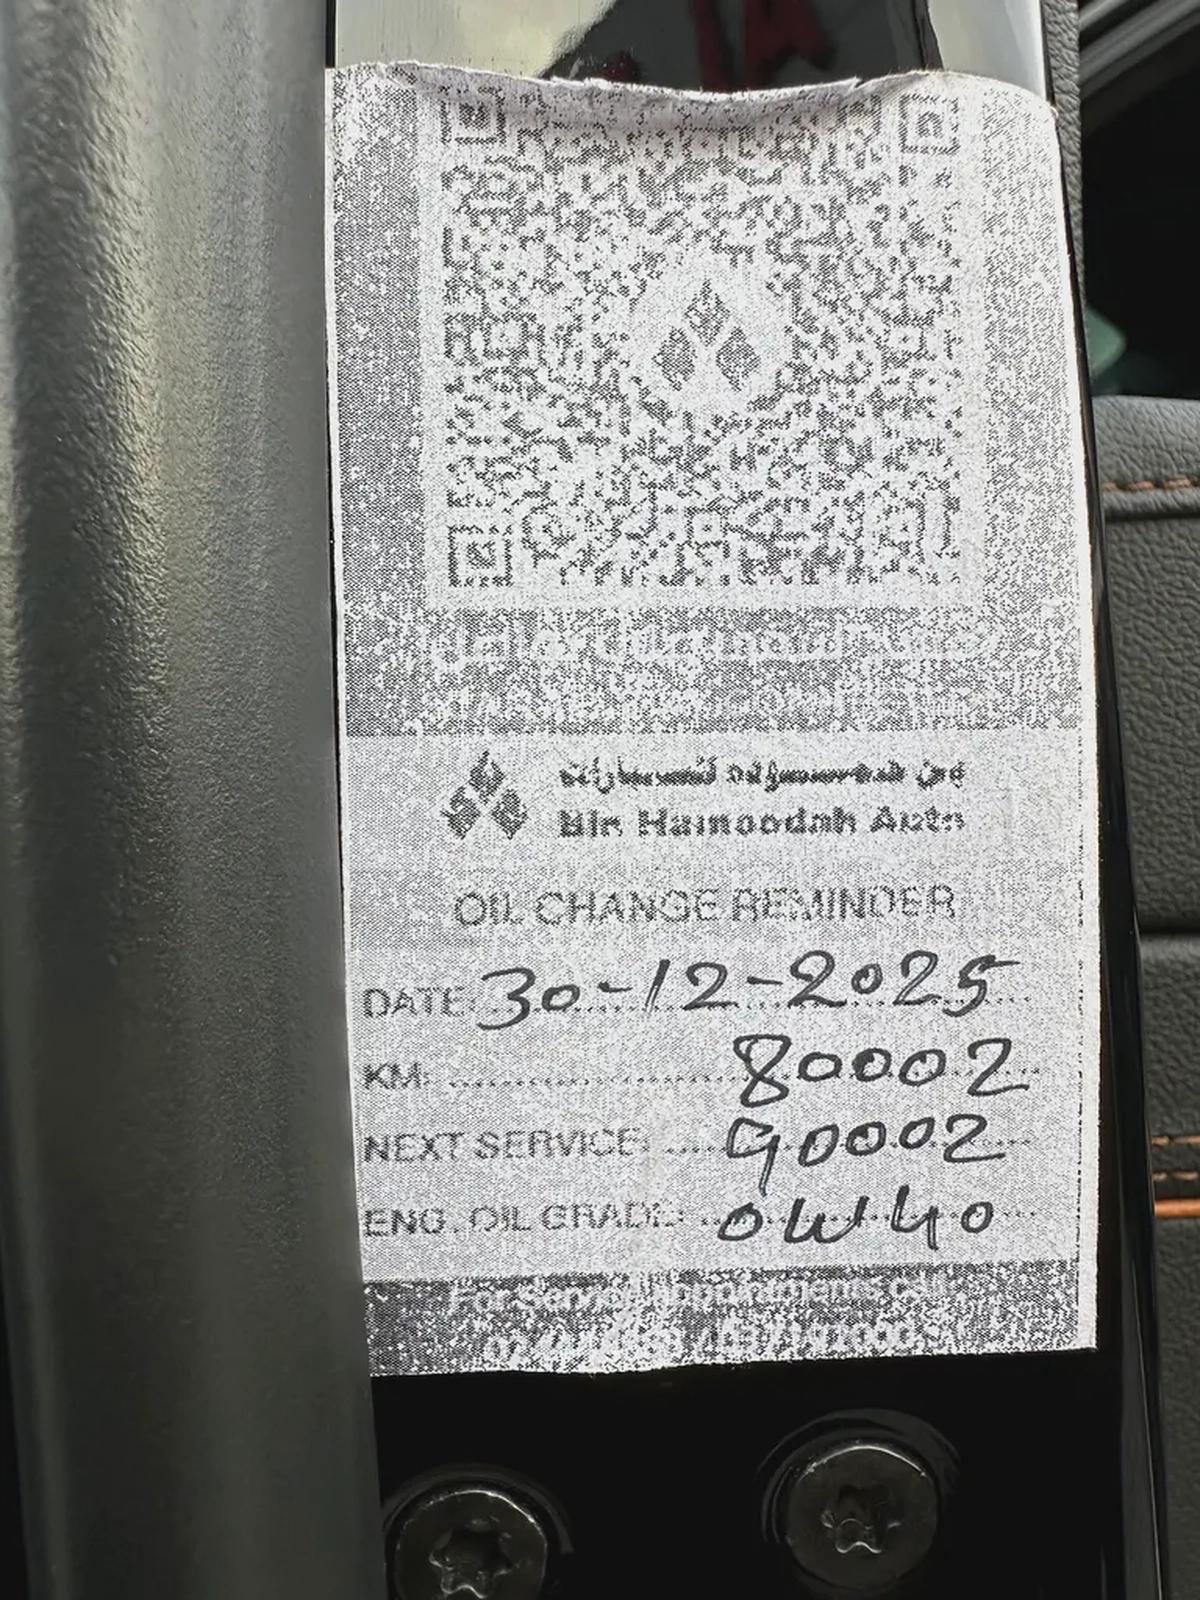 بن حموده للسيارات
Bin Hamoodah Auto
OIL CHANGE REMINDER
DATE: 30-12-2025
KM: 80002
NEXT SERVICE: 90002
ENG. OIL GRADE: 0W40
For Service Appointments call